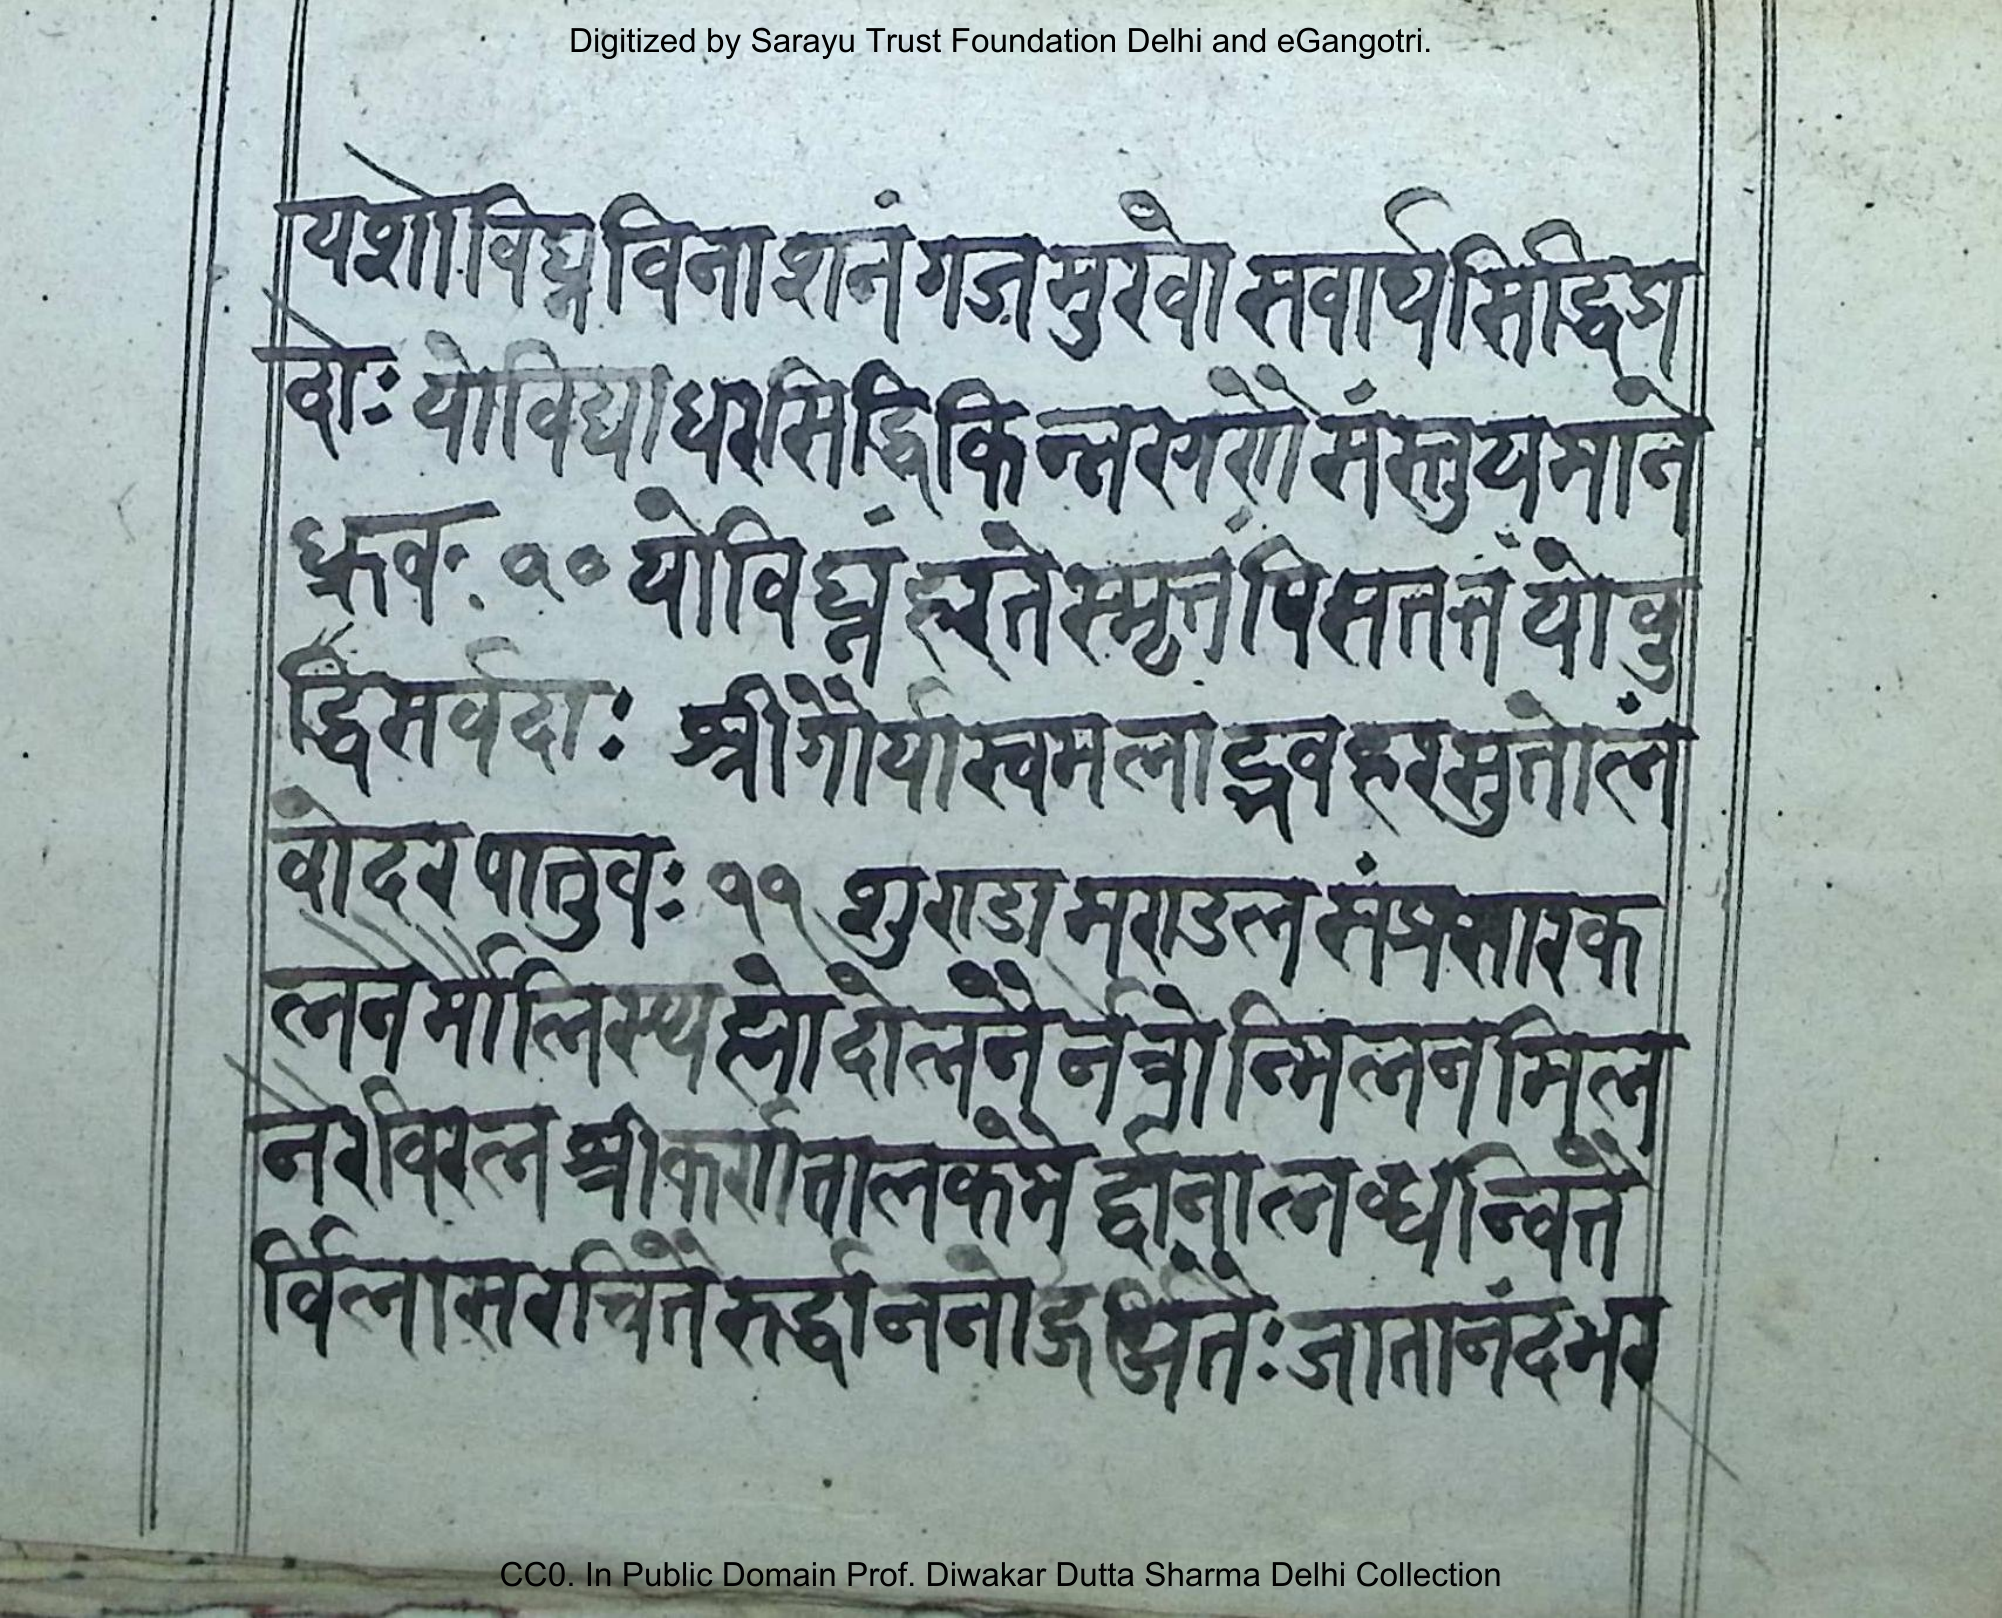 Digitized by Sarayu Trust Foundation Delhi and eGangotri.
यशोविघ्नविनाशनं गजमुखो सवार्थसिद्धिप्र
दोः योविद्याधरसिद्धिकिन्नरगणै संस्तुयमाने
ध्रुवः १० योविघ्नं हरते स्मृतं पि सततं यो वु
द्धिसर्वदाः श्रीगौर्यास्वमलाद्भवहरसुतोलं
वोदरपातुवः ११ शुण्डामण्डलसंप्रसारक
लनैर्मौलिस्य दोलनैर्नेत्रोन्मिलनमिल
नैरविरल श्रीकर्णतालक्रमै
र्विलासरचितै जातानंदभर
CC0. In Public Domain Prof. Diwakar Dutta Sharma Delhi Collection